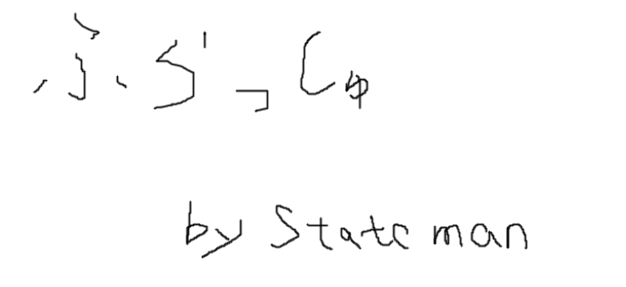 ふらっしゅ
by Stateman